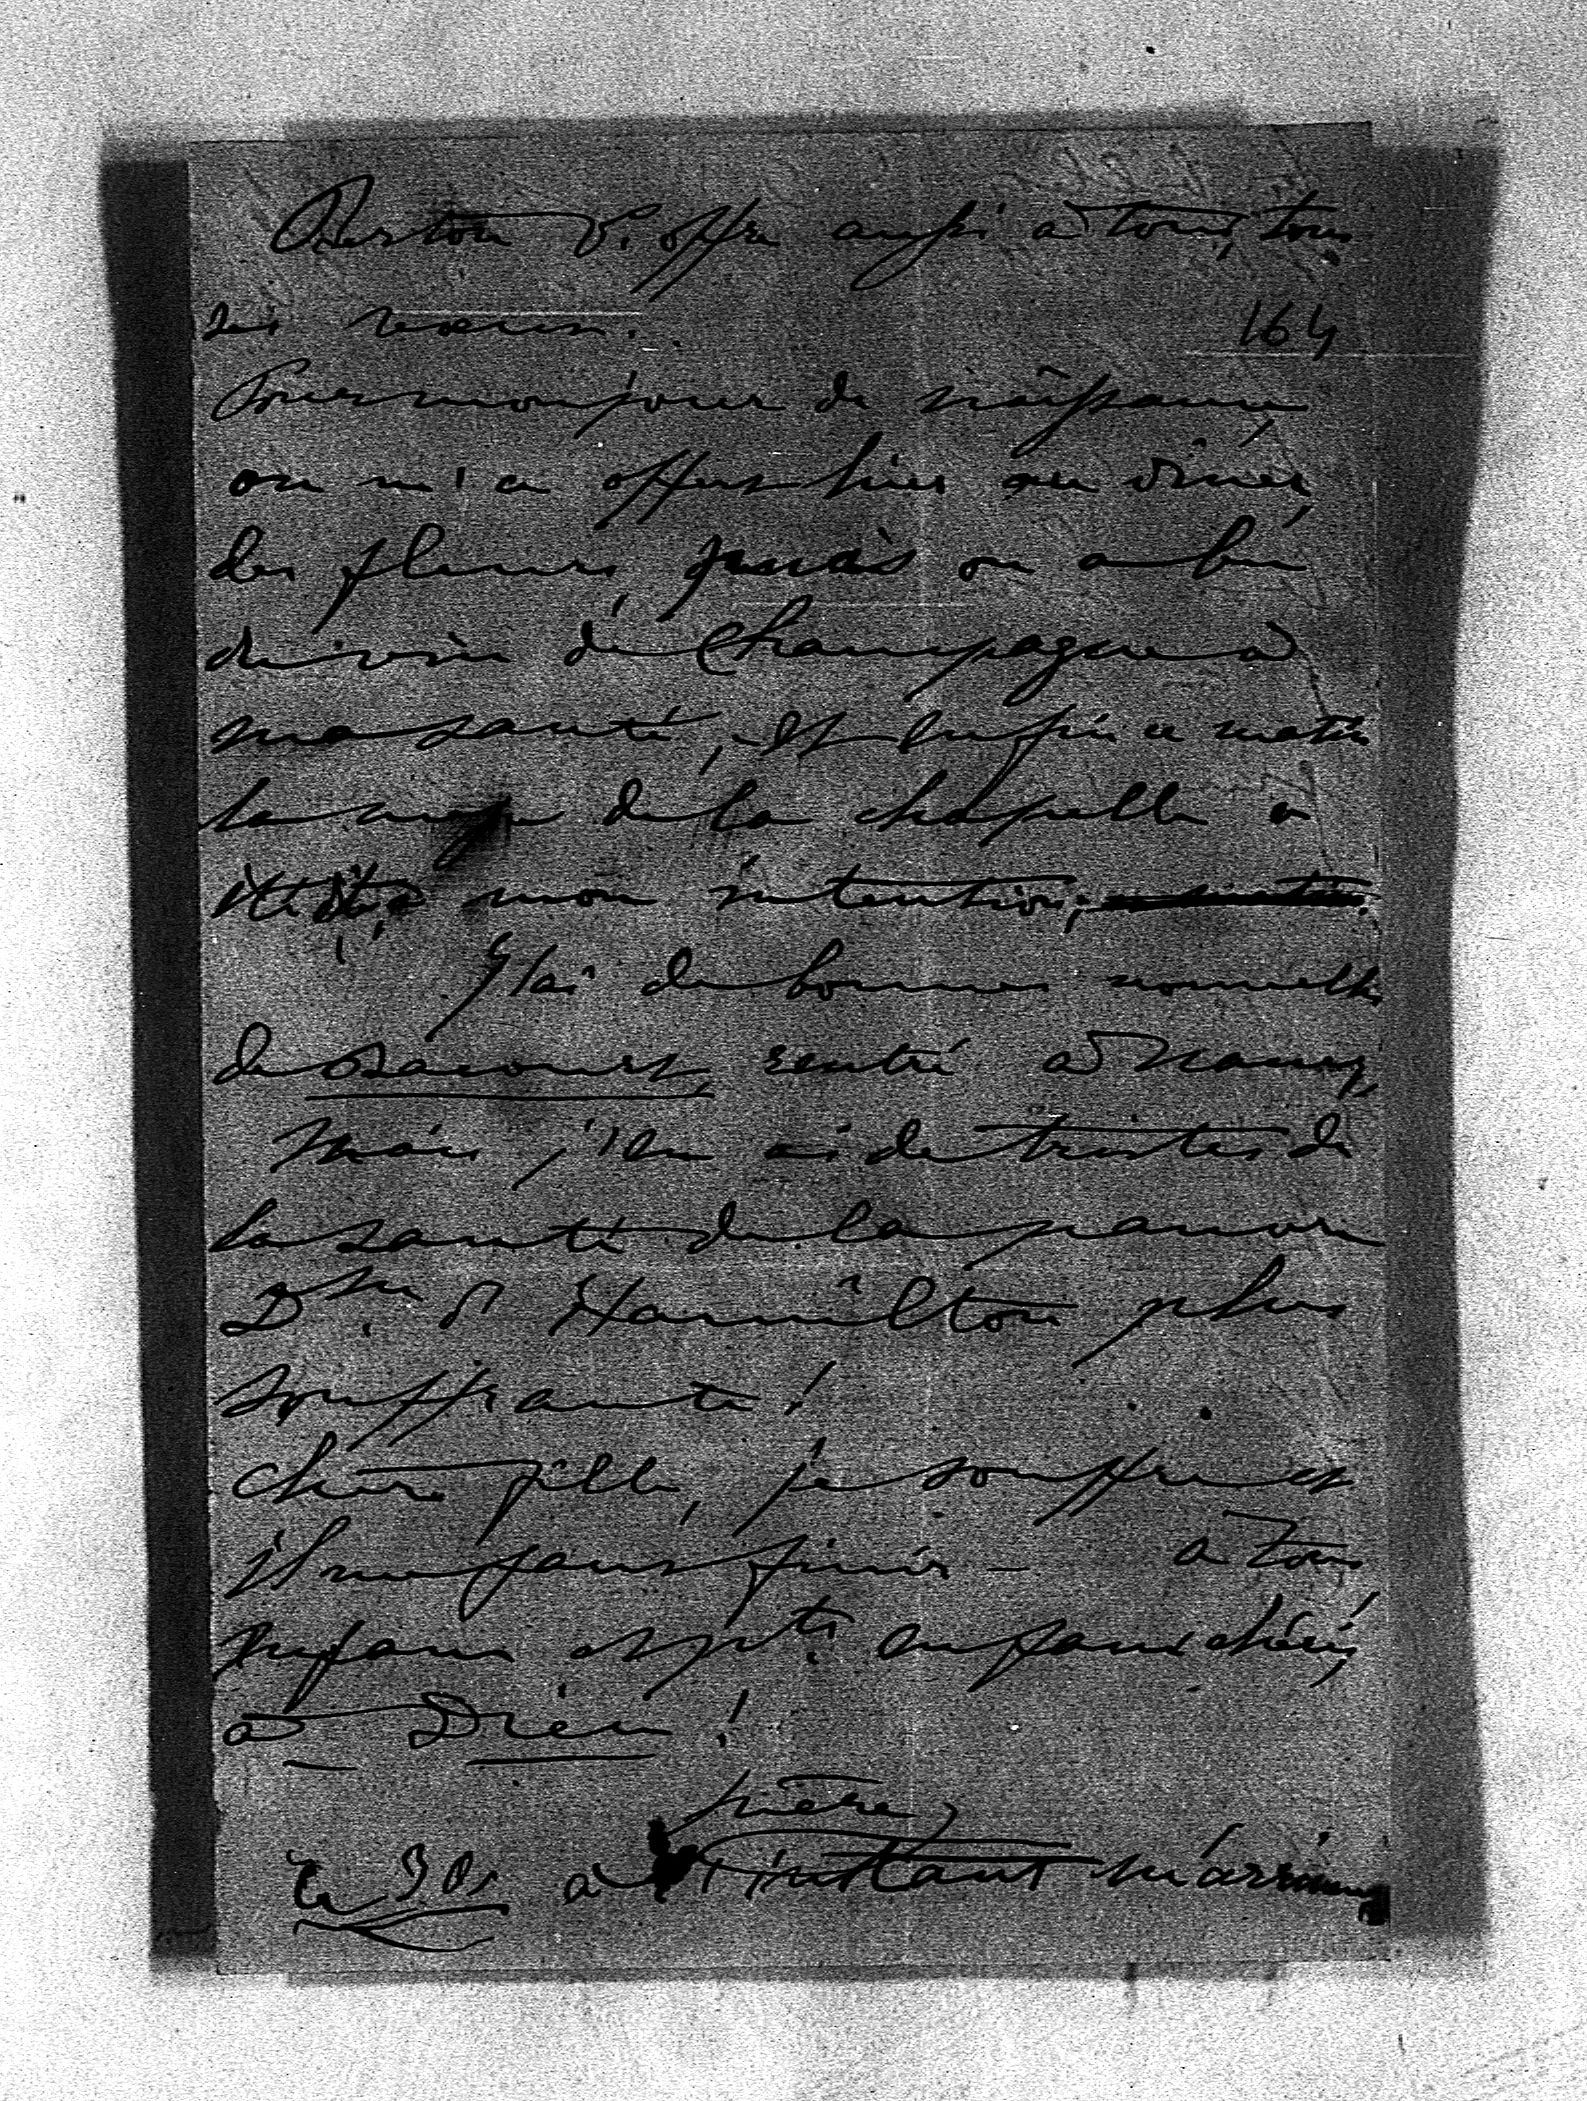 v. offre aussi à tous, tous
ses voeux.
164
Pour mon jour de naissance,
on m'a offert hier au dîner
des fleurs, puis on a bu
du vin de Champagne à
ma santé, et enfin ce matin
la messe de la chapelle a
été dite à mon intention,
J'ai de bonnes nouvelles
de rentré à Nancy,
Mais j'en ai de tristes de
la santé de la pauvre
D.sse d'Hamilton plus
souffrante!
Chère fille, je souffre et
il me faut finir - à tous
enfans et p.ts enfans chéris,
à Dieu!
prière,
Ce 30, à l'instant m'arrive